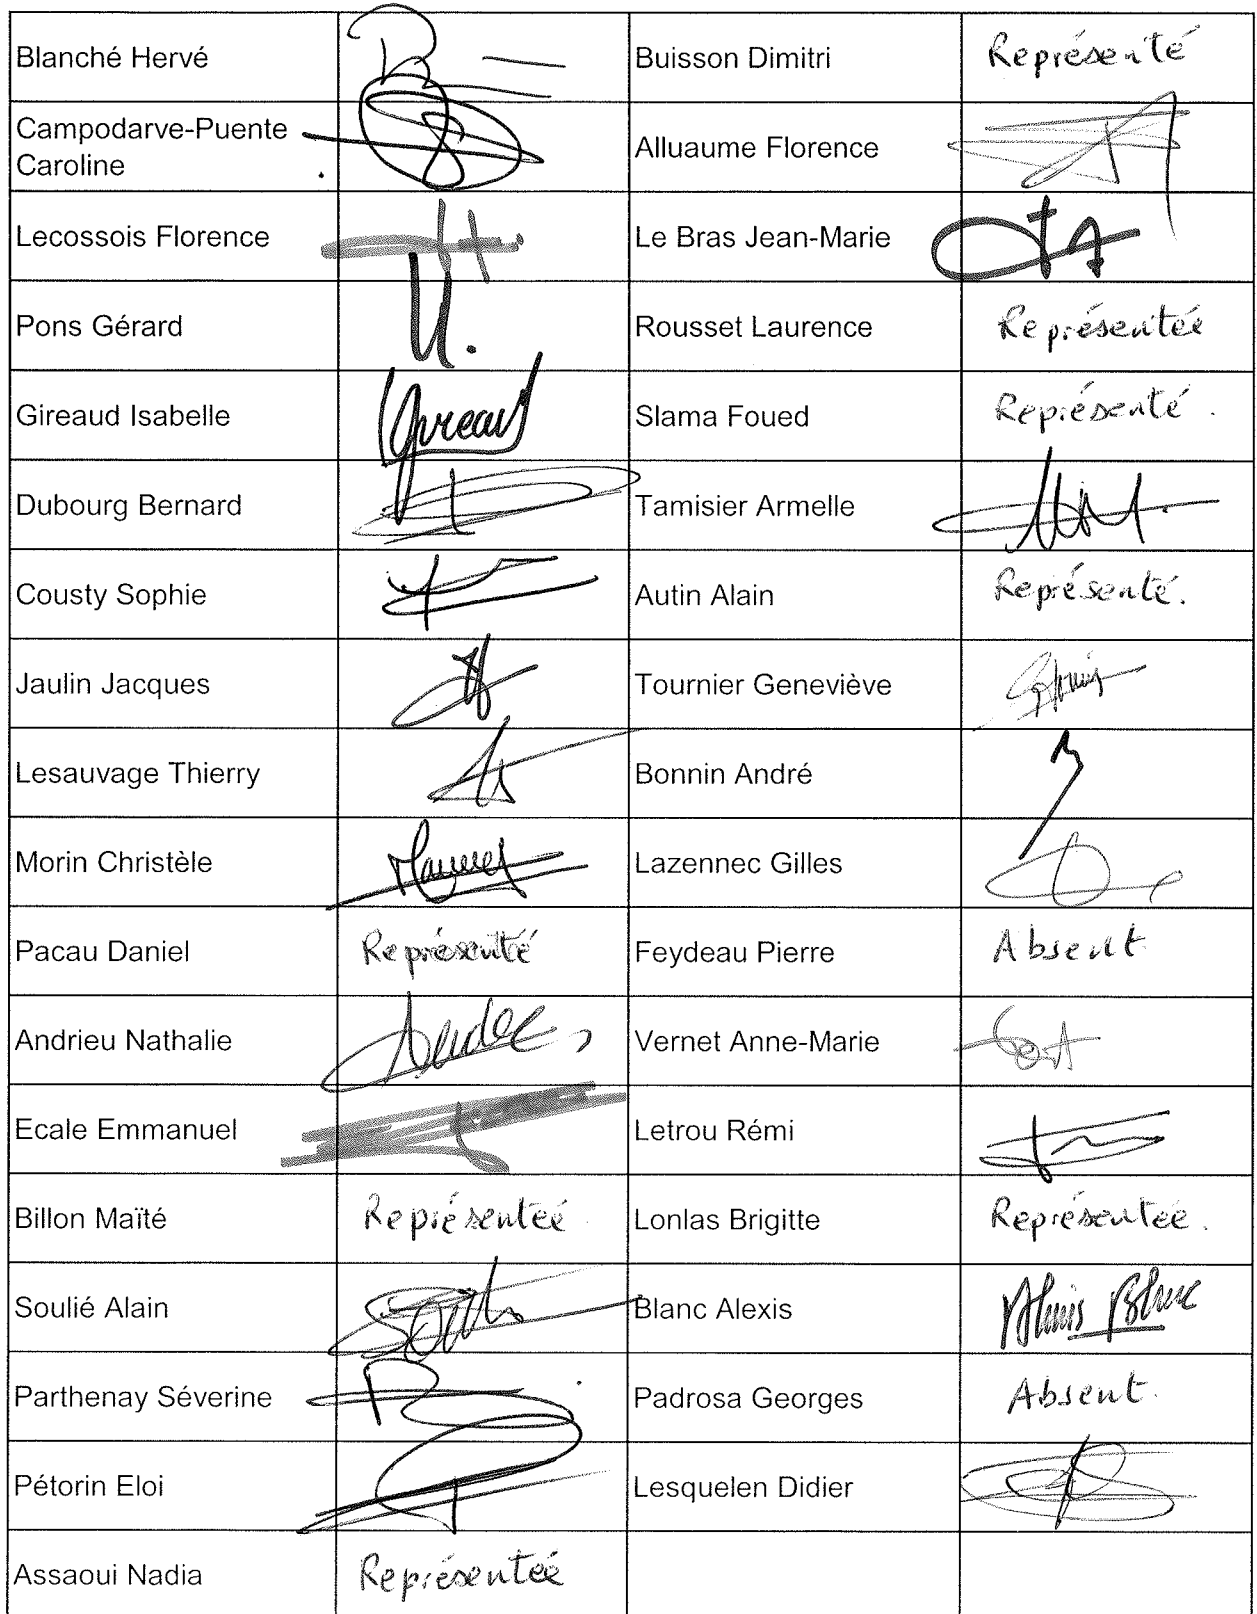 Blanché Hervé
Buisson Dimitri
Représenté
Campodarve-Puente
Caroline
Alluaume Florence
Lecossois Florence
Le Bras Jean-Marie
Pons Gérard
Rousset Laurence
Représentée
Gireaud Isabelle
Gireaud
Slama Foued
Représenté.
Dubourg Bernard
Tamisier Armelle
Cousty Sophie
Autin Alain
Représenté.
Jaulin Jacques
Tournier Geneviève
Lesauvage Thierry
Bonnin André
Morin Christèle
Lazennec Gilles
Pacau Daniel
Représenté
Feydeau Pierre
Absent
Andrieu Nathalie
Vernet Anne-Marie
Ecale Emmanuel
Letrou Rémi
Billon Maïté
Représentée
Lonlas Brigitte
Représentée.
Soulié Alain
Blanc Alexis
Alexis Blanc
Parthenay Séverine
Padrosa Georges
Absent.
Pétorin Eloi
Lesquelen Didier
Assaoui Nadia
Représentée